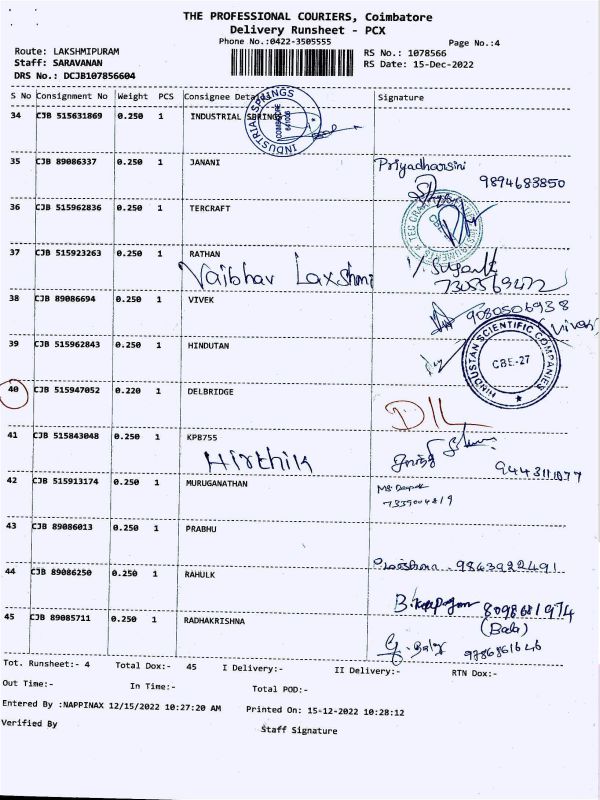 THE PROFESSIONAL COURIERS, Coimbatore
Delivery Runsheet - PCX
Phone No.:0422-3505555
Page No.:4
Route: LAKSHMIPURAM
RS No.: 1078566
Staff: SARAVANAN
RS Date: 15-Dec-2022
DRS No.: DCJB107856604
S No Consignment No Weight PCS Consignee Details Signature
34 CJB 515631869 0.250 1 INDUSTRIAL SPRINGS
INDUSTRIAL SPRINGS
35 CJB 89086337 0.250 1 JANANI
Priyadharsini
9894683850
36 CJB 515962836 0.250 1 TERCRAFT
37 CJB 515923263 0.250 1 RATHAN
Vaibhav Laxshmi
38 CJB 89086694 0.250 1 VIVEK
9080506938
(Vivek)
39 CJB 515962843 0.250 1 HINDUTAN
HINDUSTAN SCIENTIFIC COMPANIES
CBE-27
40 CJB 515947052 0.220 1 DELBRIDGE
DIL
41 CJB 515843048 0.250 1 KPB755
Hirthik
42 CJB 515913174 0.250 1 MURUGANATHAN
43 CJB 89086013 0.250 1 PRABHU
9843922491
44 CJB 89086250 0.250 1 RAHULK
8098681974
45 CJB 89085711 0.250 1 RADHAKRISHNA
Tot. Runsheet:- 4 Total Dox:- 45 I Delivery:- II Delivery:- RTN Dox:-
Out Time:- In Time:- Total POD:-
Entered By :NAPPINAX 12/15/2022 10:27:20 AM Printed On: 15-12-2022 10:28:12
Verified By Staff Signature